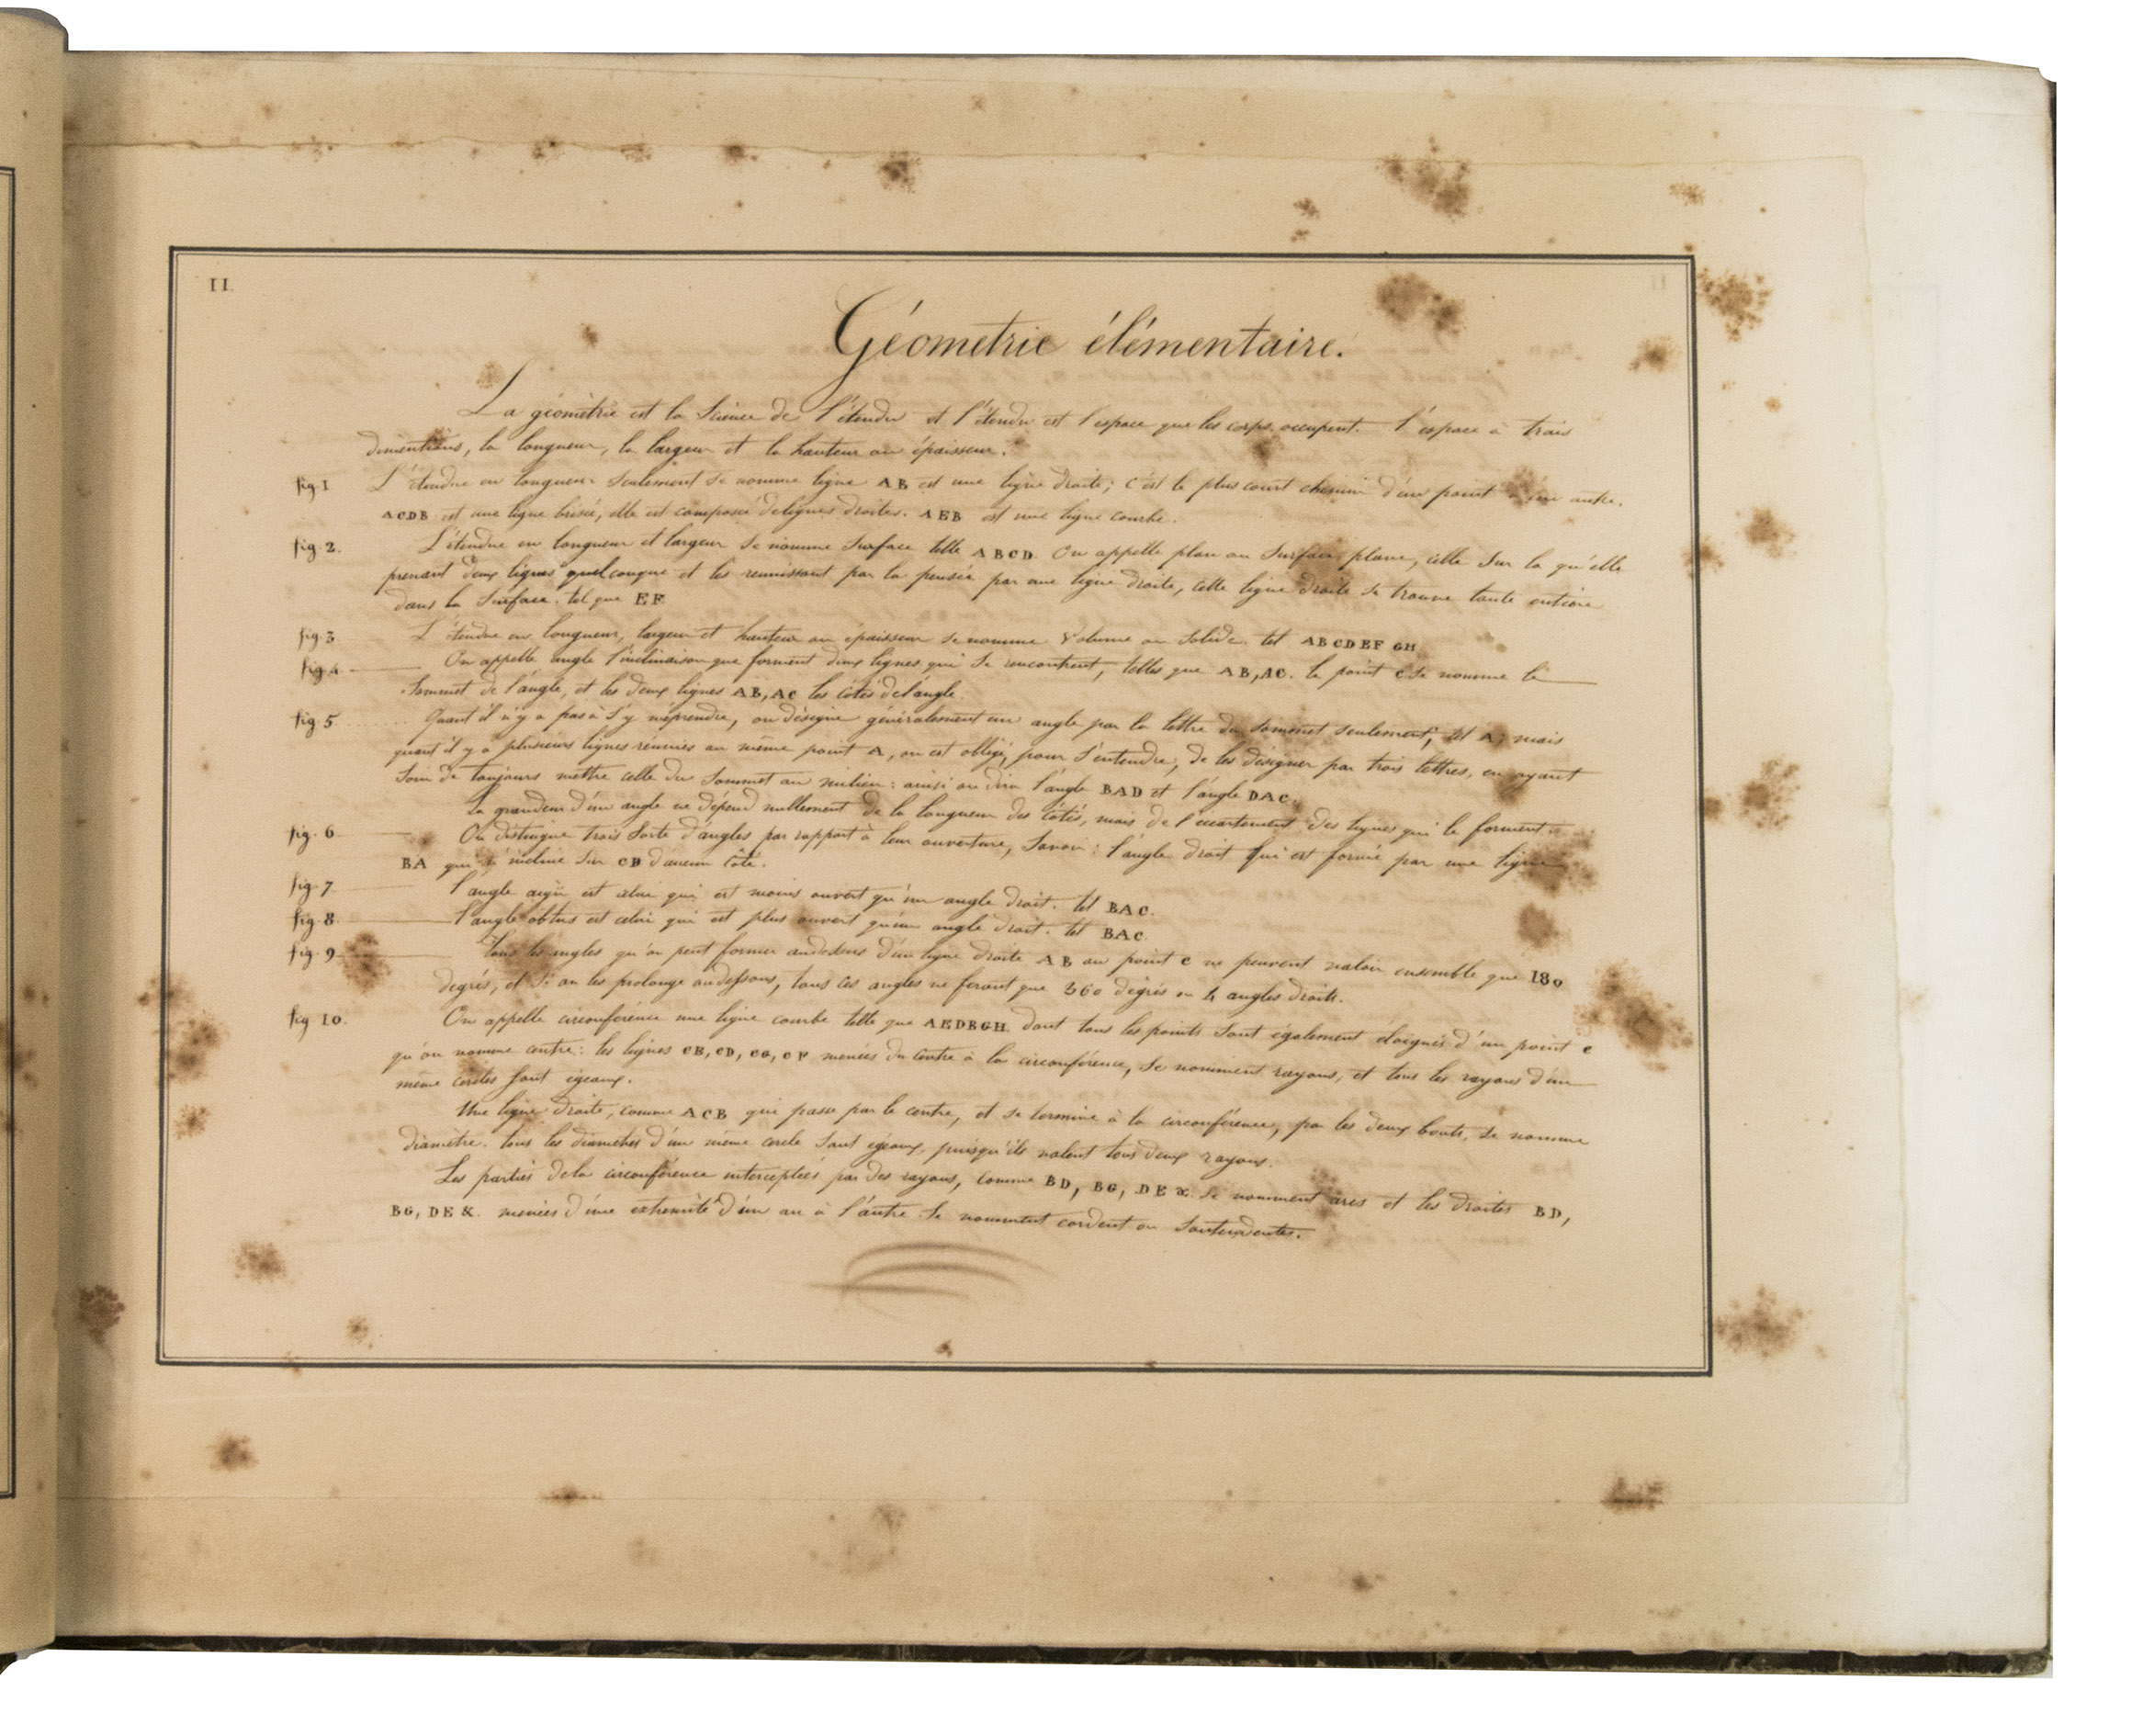 II.
Géometrie élémentaire.
La géométrie est la Science de l'étendu et l'étendu est l'espace que les corps occupent. l'espace à trois
dimentions, la longueur, la largeur et la hauteur ou épaisseur.
fig 1 L'étendue en longueur Seulement Se nomme ligne AB est une ligne droite; C'est le plus court chemin d'un point à un autre.
ACDB est une ligne brisée, elle est composée de lignes droites. AEB est une ligne courbe.
fig 2. L'étendue en longueur et largeur Se nomme Surface telle ABCD. On appelle plan ou Surface plane, celle Sur la qu'elle
prenant deux lignes quelconque et les reunissant par la pensée par une ligne droite, cette ligne droite Se trouve toute entiere
dans la Surface. tel que EF
fig. 3 L'étendue en longueur, largeur et hauteur ou épaisseur Se nomme Volume ou Solide. tel ABCDEFGH
fig 4 On appelle angle l'inclinaison que forment deux lignes qui Se rencontrent, telles que AB, AC. le point C Se nomme le
Sommet de l'angle, et les deux lignes AB, AC les côtés de l'angle.
fig. 5 Quant il n'y a pas à S'y méprendre, on désigne généralement un angle par la lettre du Sommet Seulement, tel A; mais
quant il y a plusieurs lignes réunies au même point A, on est obligé, pour S'entendre, de les désigner par trois lettres, en ayant
Soin de toujours mettre celle du Sommet au milieu: ainsi on dira l'angle BAD et l'angle DAC.
La grandeur d'un angle ne dépend nullement de la longueur des côtés, mais de l'écartement des lignes qui le forment.
fig. 6 On distingue trois Sorte d'angles par rapport à leur ouverture, Savoir: l'angle droit qui est formé par une ligne
BA qui n'incline Sur CD d'aucun côté.
fig. 7 l'angle aigu est celui qui est moins ouvert qu'un angle droit. tel BAC.
fig. 8. l'angle obtus est celui qui est plus ouvert qu'un angle droit. tel BAC.
fig. 9 Tous les angles qu'on peut former audessus d'une ligne droite AB au point C ne peuvent valoir ensemble que 180
degrés, et Si on les prolonge audessous, tous ces angles ne feront que 360 degrés ou 4 angles droits.
fig 10. On appelle circonférence une ligne courbe telle que AEDBGH dont tous les points Sont également éloignés d'un point C
qu'on nomme centre: les lignes CB, CD, CG, CF menées du Centre à la circonférence, Se nomment rayons, et tous les rayons d'un
même cercles Sont égeaux.
Une ligne droite, comme ACB qui passe par le centre, et Se termine à la circonférence, par les deux bouts, Se nomme
diamètre. tous les diamètres d'un même cercle Sont égeaux, puisqu'ils valent tous deux rayons.
Les parties de la circonférence interceptées par des rayons, comme BD, BG, DE &. Se nomment arcs et les droites BD,
BG, DE &. menées d'une extremité d'un arc à l'autre Se nomment cordent ou Soutendentes.